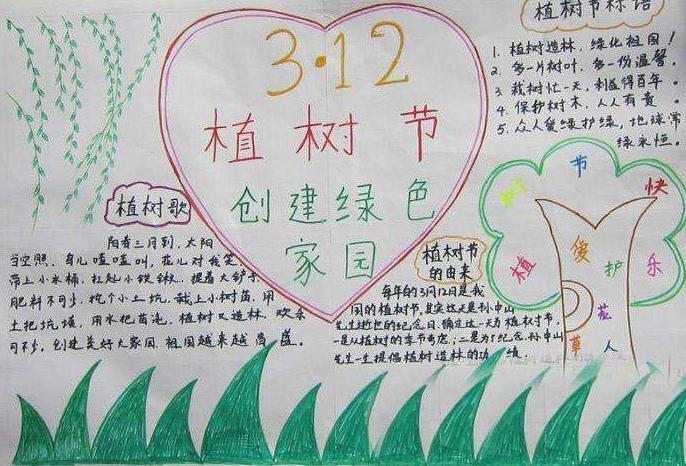 3·12
植树节
创建绿色
家园
植树节标语
1. 植树造林，绿化祖国！
2. 多一片树叶，多一份温馨。
3. 栽树忙一天，利益得百年。
4. 保护树木，人人有责。
5. 众人爱绿护绿，地球常
绿永恒。
植树歌
阳春三月到，太阳
当空照，鸟儿喳喳叫，花儿对我笑，
带上小水桶，扛起小铁锹，提着大铲子，
肥料不可少，挖个小土坑，载上小树苗，用
土把坑填，用水把苗浇，植树又造林，欢乐
可不少，创建美好大家园，祖国越来越富蓝。
植树节
的由来
每年的3月12日是我
国的植树节，其实这天是孙中山
先生逝世的纪念日，确定这一天为植树节，
一是从植树的季节考虑；二是为了纪念孙中山
先生一生提倡植树造林的功绩。
植树节快乐
爱护花
草人